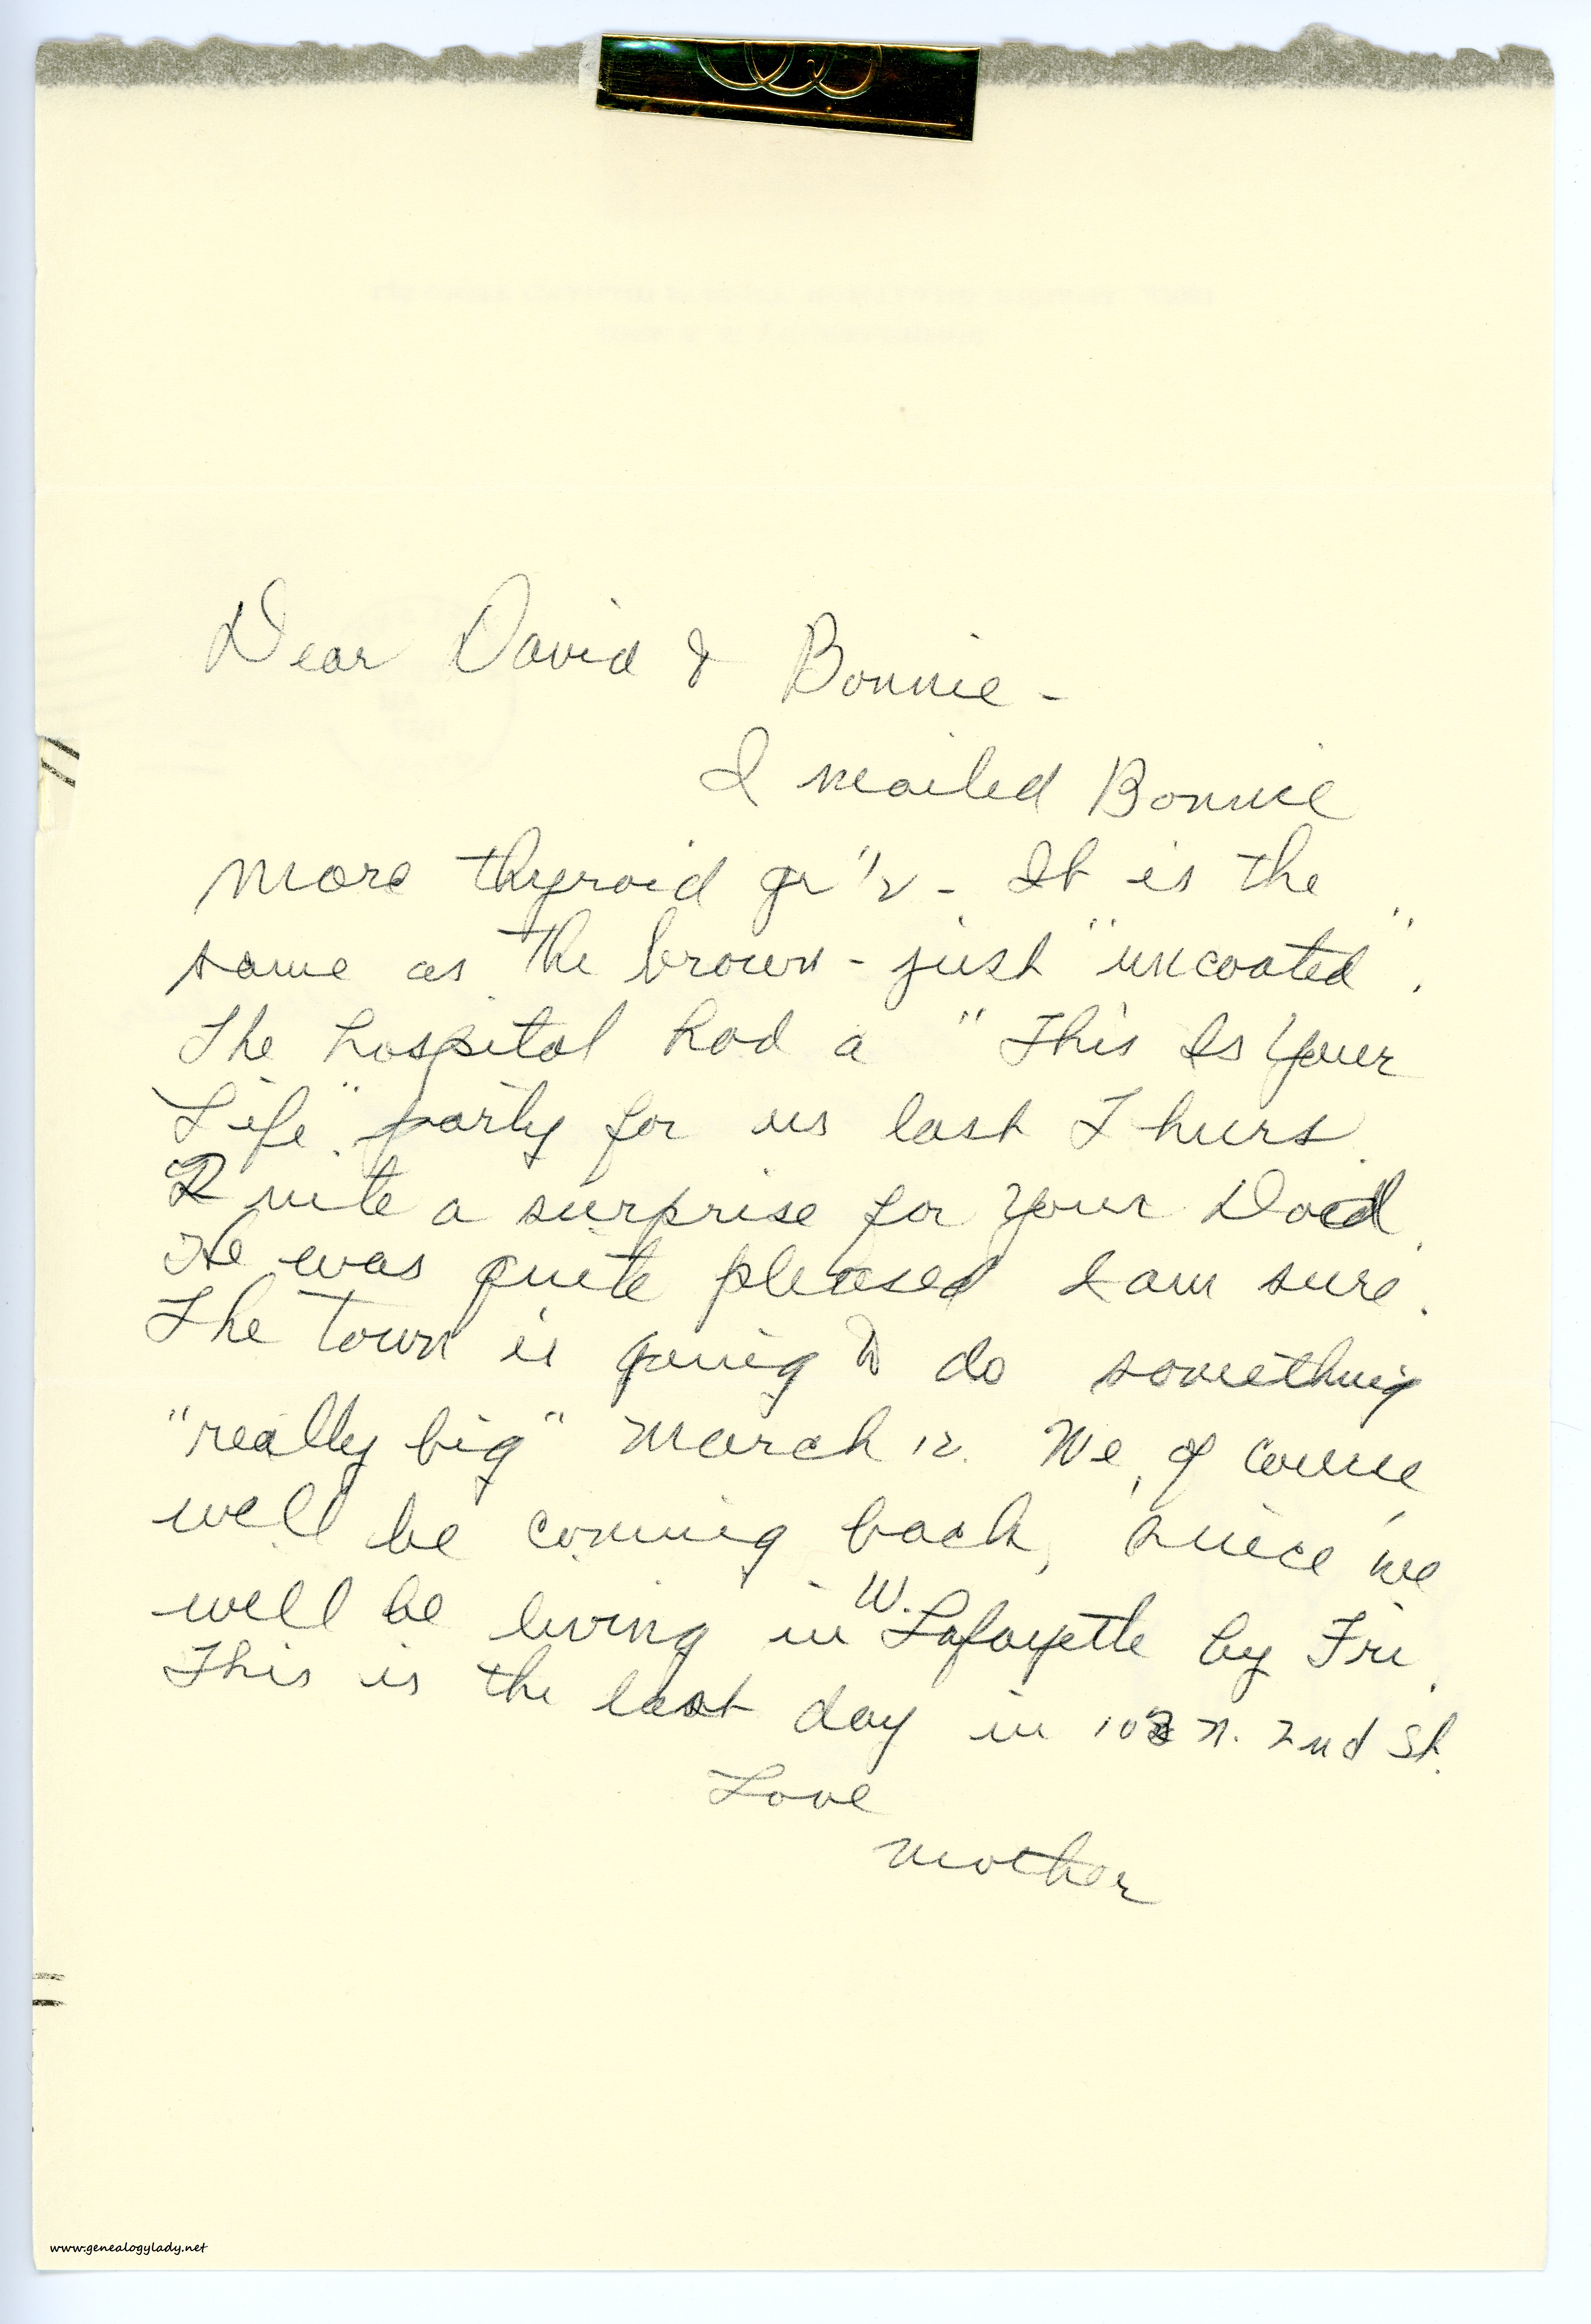 Dear David & Bonnie -
I mailed Bonnie
more thyroid gr 1/2 - It is the
same as the brown - just "uncoated".
The hospital had a "This Is Your
Life" party for us last Thurs.
Quite a surprise for your Dad.
He was quite pleased I am sure.
The town is going to do something
"really big" March 12. We, of course,
will be coming back, since we
will be living in W. Lafayette by Fri.
This is the last day in N. 2nd St.
Love
Mother
www.genealogylady.net